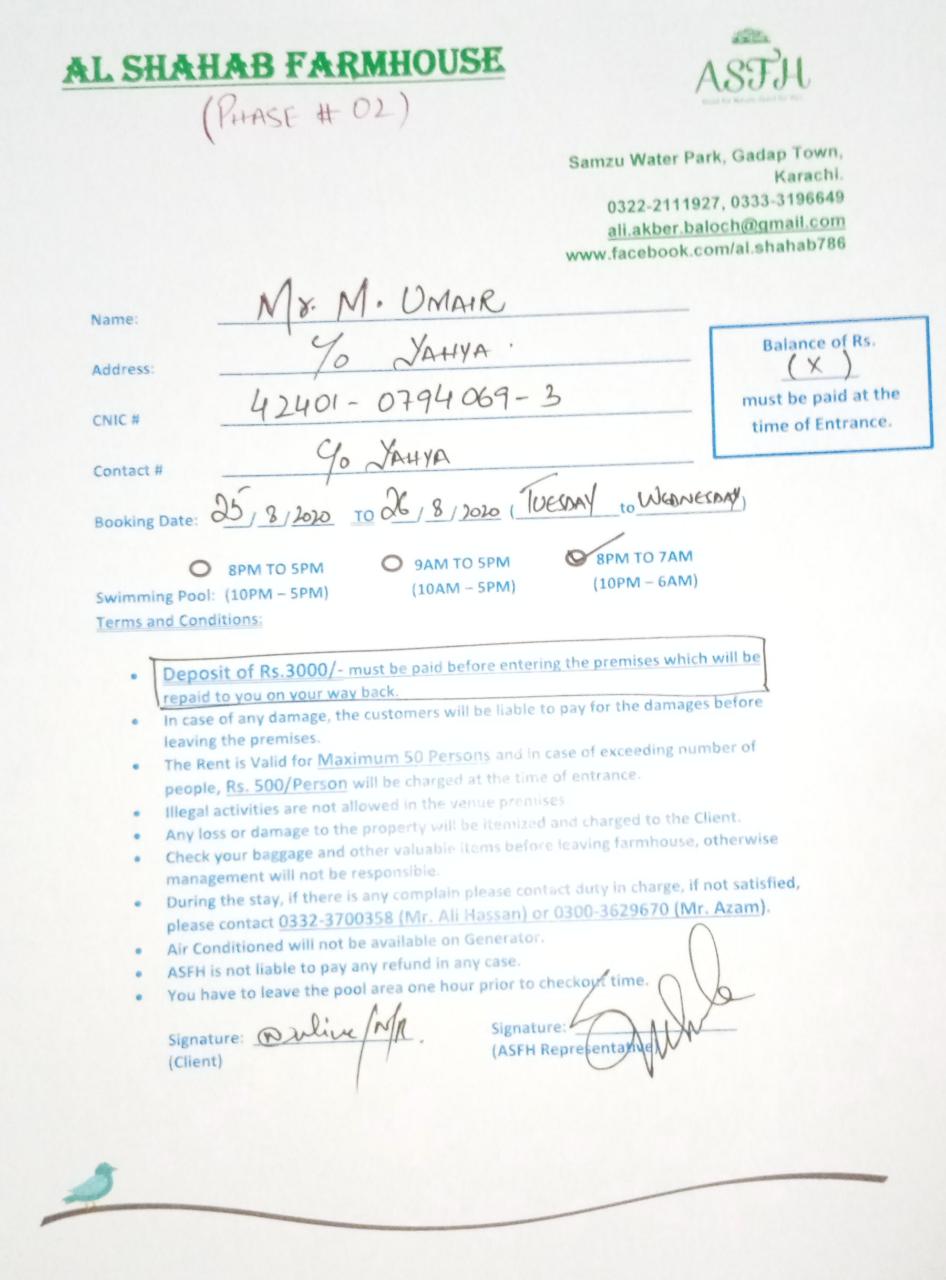 AL SHAHAB FARMHOUSE
(PHASE # 02)
ASFH
Samzu Water Park, Gadap Town,
Karachi.
0322-2111927, 0333-3196649
ali.akber.baloch@gmail.com
www.facebook.com/al.shahab786
Name: Mr. M. UMAIR
Address: C/o YAHYA.
CNIC # 42401-0794069-3
Contact # C/o YAHYA
Balance of Rs.
(X)
must be paid at the
time of Entrance.
Booking Date: 25/8/2020 TO 26/8/2020 (TUESDAY to WEDNESDAY)
8PM TO 5PM 9AM TO 5PM 8PM TO 7AM
Swimming Pool: (10PM – 5PM) (10AM – 5PM) (10PM – 6AM)
Terms and Conditions:
• Deposit of Rs.3000/- must be paid before entering the premises which will be
repaid to you on your way back.
• In case of any damage, the customers will be liable to pay for the damages before
leaving the premises.
• The Rent is Valid for Maximum 50 Persons and in case of exceeding number of
people, Rs. 500/Person will be charged at the time of entrance.
• Illegal activities are not allowed in the venue premises
• Any loss or damage to the property will be itemized and charged to the Client.
• Check your baggage and other valuable items before leaving farmhouse, otherwise
management will not be responsible.
• During the stay, if there is any complain please contact duty in charge, if not satisfied,
please contact 0332-3700358 (Mr. Ali Hassan) or 0300-3629670 (Mr. Azam).
• Air Conditioned will not be available on Generator.
• ASFH is not liable to pay any refund in any case.
• You have to leave the pool area one hour prior to checkout time.
Signature: Signature:
(Client) (ASFH Representative)